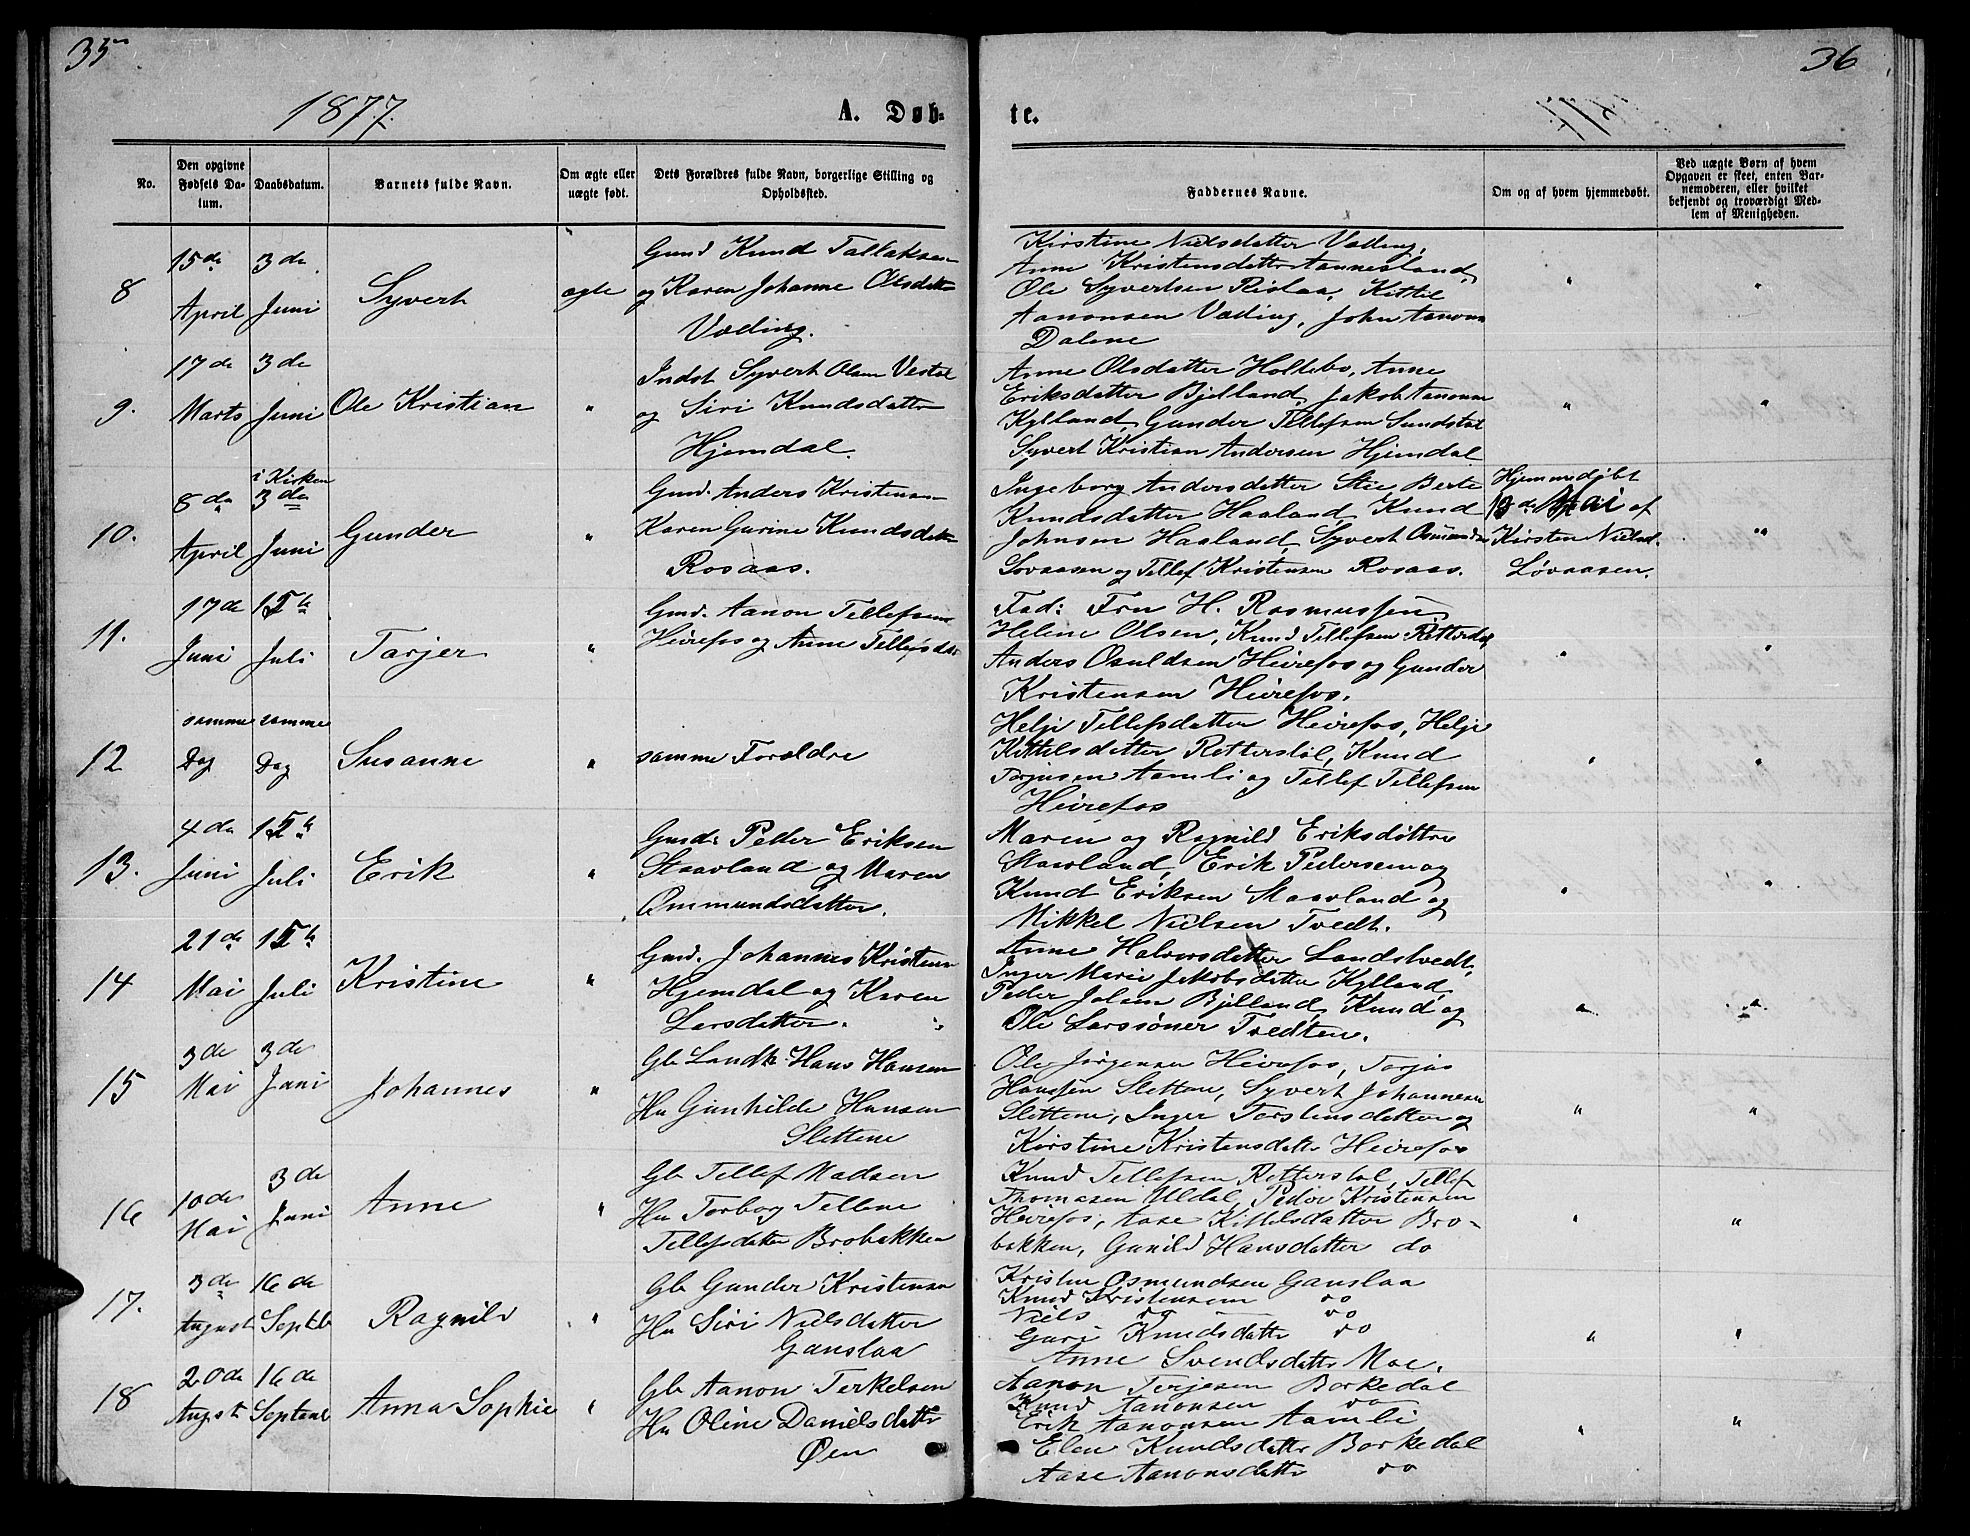 35
36
1877.
A. Døb-
te.
No.
Den opgivne
Fødsels Da-
tum.
Daabsdatum.
Barnets fulde Navn.
Om ægte eller
uægte født.
Dets Forældres fulde Navn, borgerlige Stilling og
Opholdssted.
Faddernes Navne.
Om og af hvem hjemmedøbt.
Ved uægte Børn af hvem
Opgaven er skeet, enten Bar-
nemoderen, eller hvilket
bekjendt og troværdigt Med-
lem af Menigheden.
8
15de
April
3de
Juni
Syvert
ægte
Gmd Knud Tallaksen
og Karen Johanne Olsdatter
Væding.
Kirstine Nielsdatter Væding,
Anne Kristensdatter Aannesland
Ole Syvertsen Rislaa, Kittil
Aanonsen Væding, John Aanonsen
Dalene
"
"
9.
17de
Marts
3de
Juni
Ole Kristian
"
Indst Syvert Olsen Vestøl
og Siri Knudsdatter
Hjemdal.
Anne Olsdatter Holtebo, Anne
Eriksdatter Bjelland, Jakob Aanonsen
Kylland, Gunder Tellefsen Sundstøl
Syvert Kristian Andersen Hjemdal
"
"
10.
8de
April
i Kirken
3de
Juni
Gunder
"
Gmd. Anders Kristensen
Karen Gurine Knudsdatter
Rosaas.
Ingeborg Andersdatter Stie Berte
Knudsdatter Haaland, Knud
Johnsen Haaland, Syvert Osmundsen
Lovaasen og Tellef Kristensen Rosaas.
Hjemmedøbt
13de Mai af
Kirsten Nielsd.
Løvaasen.
"
11.
17de
Juni
15de
Juli
Tarjer
"
Gmd. Aanon Tellefsen
Heirefos og Anne Tellefsdtr
Fad: Fru H. Rasmussen
Helene Olsen, Knud Tellefsen Retterstøl,
Anders Osuldsen Heirefos og Gunder
Kristensen Heirefos.
"
"
12
samme
Dag
samme
Dag
Susanne
"
samme Forældre
Helje Tellefsdatter Heirefos, Helje
Kittelsdatter Retterstøl, Knud
Torjusen Aamli og Tellef Tellefsen
Heirefos
"
"
13.
4de
Juni
15de
Juli
Erik
"
Gmd: Peder Eriksen
Staavland og Maren
Ommundsdatter.
Maren og Ragnild Eriksdøttre
Staavland, Erik Pedersen og
Knud Eriksen Staavland og
Mikkel Nielsen Tvedt.
"
"
14
21de
Mai
15de
Juli
Kristine
"
Gmd. Johannes Kristensen
Hjemdal og Karen
Larsdatter.
Anne Halvorsdatter Landstvedt,
Inger Marie Jakobsdatter Kylland,
Peder Jolsen Bjelland, Knud og
Ole Larssøner Tvedten.
"
"
15
3de
Mai
3de
Juni
Johannes
"
Gb Landh. Hans Hansen
Hu Gunhilde Hansen
Slettene
Ole Jørgensen Heirefos, Torjus
Hanssen Slettene, Syvert Johannesen
Slettene, Inger Torstensdatter og
Kirstine Kristensdatter Heirefos
"
"
16
10de
Mai
3de
Juni
Anne
"
Gb Tellef Madsen
Hu Torbog Tellene
Tellefsdatter Brobakken
Knud Tellefsen Retterstøl, Tellef
Thomasen Uldal, Peder Kristensen
Heirefos, Aase Kittelsdatter Bro-
bakken, Gunild Hansdatter do
"
"
17.
3de
August
16de
Septb
Ragnild
"
Gb Gunder Kristensen
Hu Siri Nielsdatter
Ganslaa
Kristen Osmundsen Ganslaa
Knud Kristensen do
Niels do do
Guri Knudsdatter do
Anne Svendsdatter Moe.
"
"
18
20de
August
16de
Septemb
Anna Sophie
"
Gb Aanon Terkelsen
Hu Oline Danielsdatter
Øen
Aanon Terjesen Borkedal
Knud Aanonsen do
Erik Aanonsen Aamli
Elen Knudsdatter Borkedal
Aase Aanonsdatter do
"
"